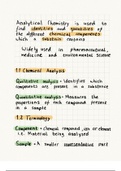 Analytical Chemistry is used to
find identities and quantities of
the different chemical components
which a substance contains
Widely used in pharmaceutical,
medicine and environmental science
1.1 Chemical Analysis
Qualitative analysis - Identifies which
components are present in a substance
Quantitative analysis - Measures the
proportions of each compound present
in a sample
1.2 Terminology
Component - Chemical compound, ion or element
Material being analysed
Sample - A smaller representative part